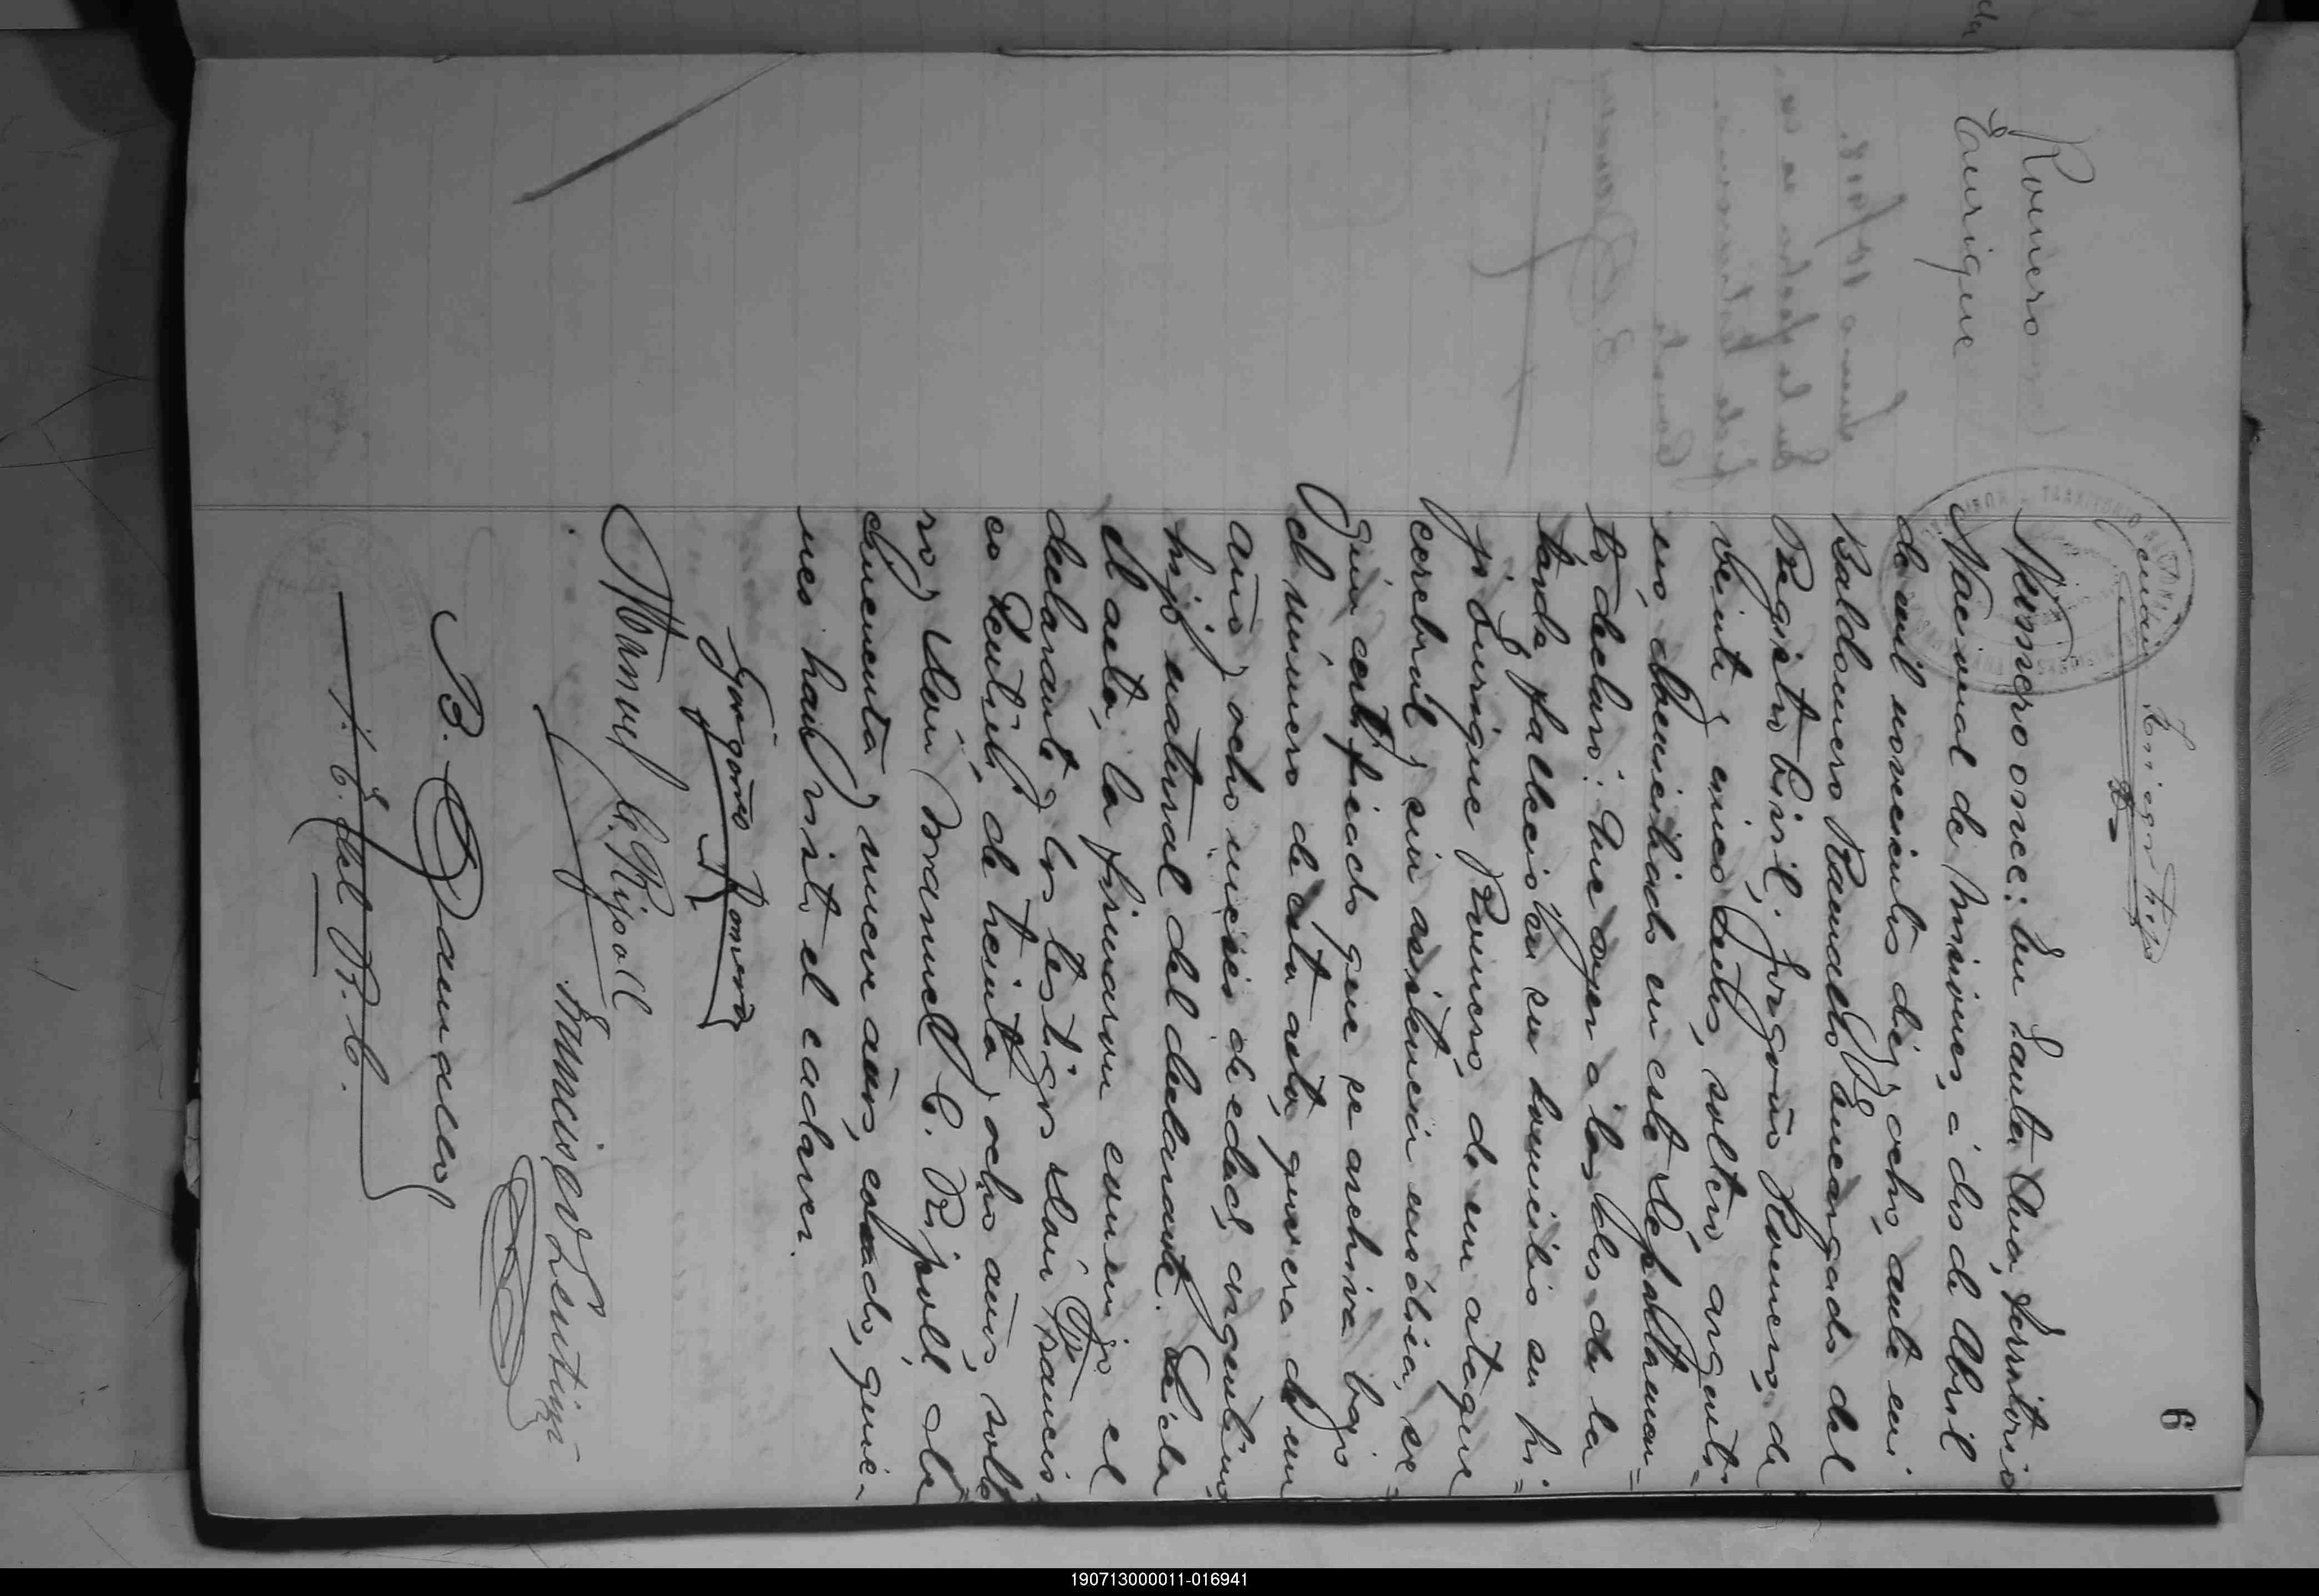 6
Romero
Enrique
Número once: En Santa Ana, Territorio
Nacional de Misiones, á dos de Abril
de mil novecientos diez y ocho, ante mi
Baldomero Ramallo Encargado del
Registro Civil; Gorgoño Romero, de
veinte y cinco años, soltero, argenti-
no, domiciliado en este Departamen=
to declaró: Que ayer á las dos de la
tarde falleció en su domicilio su hi=
jo Enrique Romero, de un ataque
cerebral y sin asistencia médica, se=
gún certificado que se archiva bajo
el número de esta acta, que era de un
año y ocho meses de edad, argentino,
hijo natural del declarante. Leida
el acta, la firmaron conmigo el
declarante y los testigos Don Francis-
co Lentini, de treinta y ocho años, solte
ro, y Don Manuel C. Ripoll, de
cincuenta y nueve años, casado, quie-
nes han visto el cadaver.
Gorgoño Romero
Manuel C. Ripoll
Francisco Lentini
B. Ramallo
J. E. del R. C.
190713000011-016941